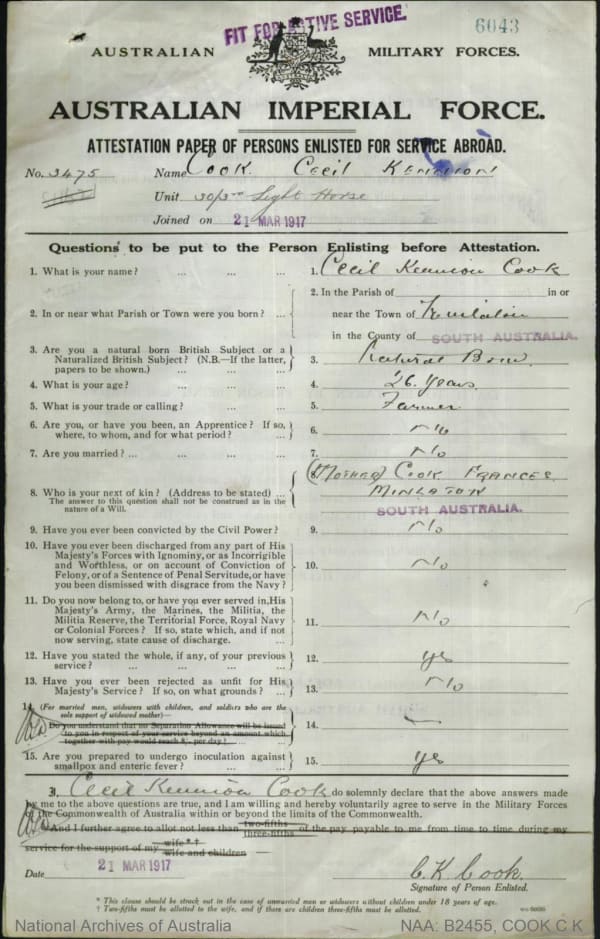 FIT FOR ACTIVE SERVICE.
6043
AUSTRALIAN MILITARY FORCES.
AUSTRALIAN IMPERIAL FORCE.
ATTESTATION PAPER OF PERSONS ENLISTED FOR SERVICE ABROAD.
No. 3475 Name Cook Cecil Kennion
Unit Light Horse
Joined on 21 MAR 1917
Questions to be put to the Person Enlisting before Attestation.
1. What is your name? ... ... ... 1. Cecil Kennion Cook
2. In or near what Parish or Town were you born? ... 2. In the Parish of in or
near the Town of
in the County of SOUTH AUSTRALIA.
3. Are you a natural born British Subject or a
Naturalized British Subject? (N.B.—If the latter,
papers to be shown.) ... ... 3. Natural Born
4. What is your age? ... ... ... 4. 26 Years
5. What is your trade or calling? ... ... 5. Farmer
6. Are you, or have you been, an Apprentice? If so,
where, to whom, and for what period? ... 6. No
7. Are you married? ... ... ... ... 7. No
8. Who is your next of kin? (Address to be stated) ... 8. (Mother) Cook Frances
The answer to this question shall not be construed as in the
nature of a Will.
MINLATON
SOUTH AUSTRALIA.
9. Have you ever been convicted by the Civil Power? 9. No
10. Have you ever been discharged from any part of His
Majesty's Forces with Ignominy, or as Incorrigible
and Worthless, or on account of Conviction of
Felony, or of a Sentence of Penal Servitude, or have
you been dismissed with disgrace from the Navy? 10. No
11. Do you now belong to, or have you ever served in, His
Majesty's Army, the Marines, the Militia, the
Militia Reserve, the Territorial Force, Royal Navy
or Colonial Forces? If so, state which, and if not
now serving, state cause of discharge. ... 11. No
12. Have you stated the whole, if any, of your previous
service? ... ... ... ... 12. yes
13. Have you ever been rejected as unfit for His
Majesty's Service? If so, on what grounds? ... 13. No
14. (For married men, widowers with children, and soldiers who are the
sole support of widowed mother)—
Do you understand that no Separation Allowance will be issued
to you in respect of your service beyond an amount which
together with pay would reach 8/- per day? 14. —
15. Are you prepared to undergo inoculation against
smallpox and enteric fever? ... ... 15. yes
I, Cecil Kennion Cook do solemnly declare that the above answers made
by me to the above questions are true, and I am willing and hereby voluntarily agree to serve in the Military Forces
of the Commonwealth of Australia within or beyond the limits of the Commonwealth.
And I further agree to allot not less than two-fifths three-fifths of the pay payable to me from time to time during my
service for the support of my wife*† wife and children
Date 21 MAR 1917 C. K. Cook.
Signature of Person Enlisted.
* This clause should be struck out in the case of unmarried men or widowers without children under 18 years of age.
† Two-fifths must be allotted to the wife, and if there are children three-fifths must be allotted.
National Archives of Australia NAA: B2455, COOK C K